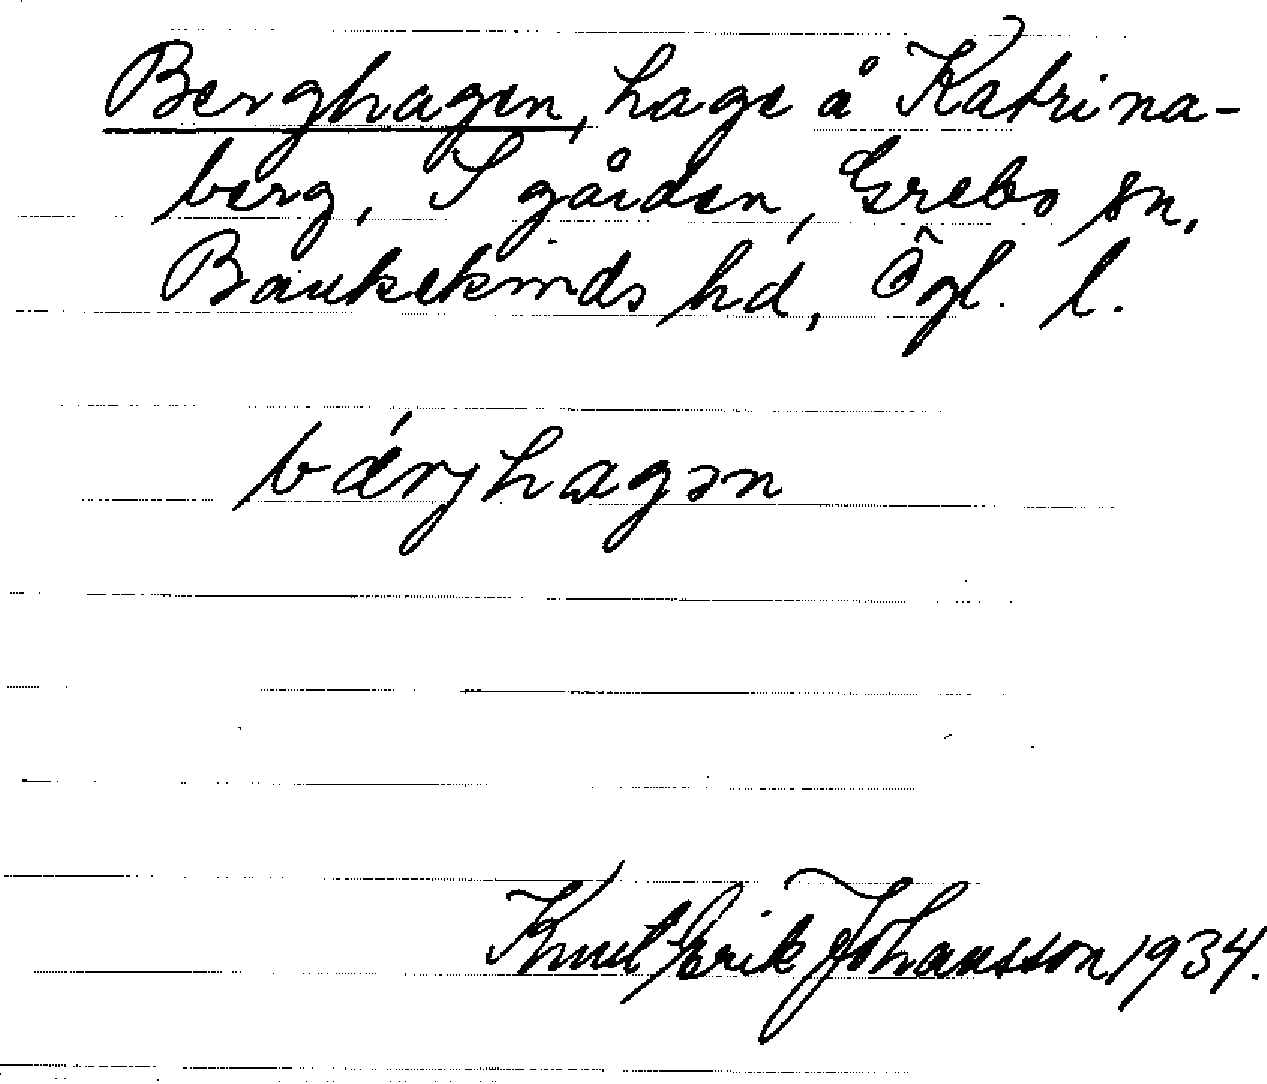 Berghagen, hage å Katrina-
berg, I gården, Grebo sn,
Bankekinds hd, Ögl. l.
bä́rjhagən
Knut Erik Johansson 1934.